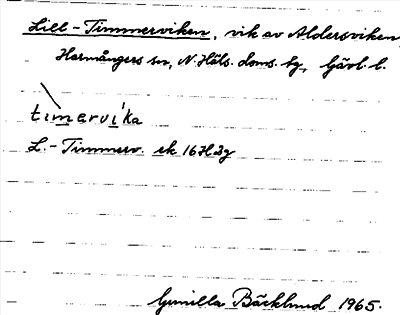 Lill-Timmerviken, vik av Aldersviken,
Harmångers sn, N. Häls. doms. hg, Gävl. l.
tımervı́ka
L.-Timmerv. ek 16H3g
Gunilla Bäcklund 1965.